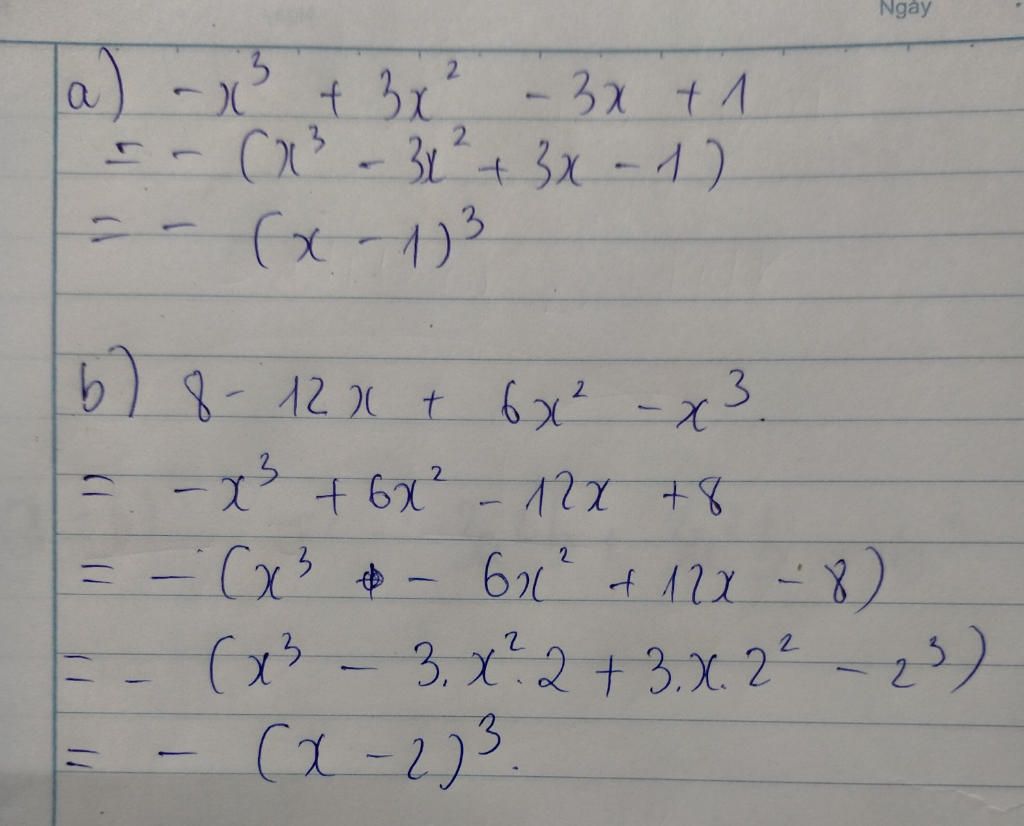 Ngày
a) -x³ + 3x² - 3x + 1
= - (x³ - 3x² + 3x - 1)
= - (x - 1)³
b) 8 - 12x + 6x² - x³.
= -x³ + 6x² - 12x + 8
= - (x³ - 6x² + 12x - 8)
= - (x³ - 3.x².2 + 3.x.2² - 2³)
= - (x - 2)³.